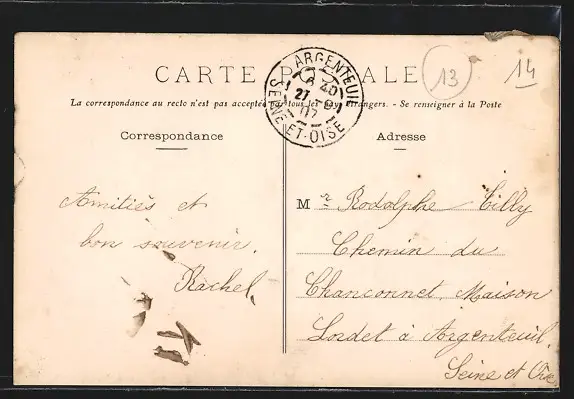 CARTE POSTALE
La correspondance au recto n'est pas acceptée par tous les pays étrangers. - Se renseigner à la Poste
ARGENTEUIL
SEINE-ET-OISE
27
07
13
14
Correspondance
Adresse
Amitiés et
bon souvenir.
Rachel
Mr Rodolphe Tilly
Chemin du
Chanconnet, Maison
Lordet à Argenteuil
Seine et Oise